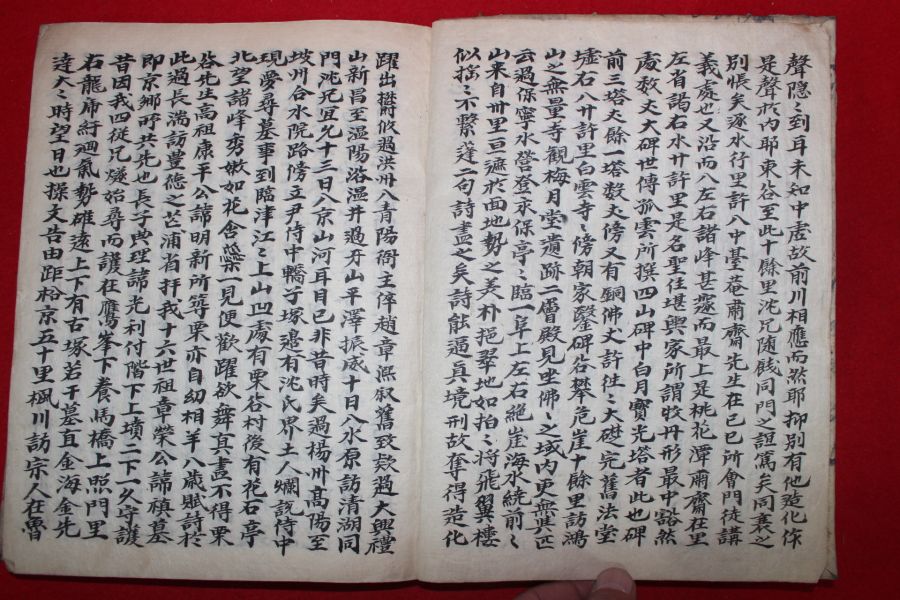 聲隱〻到耳未知中虛故前川相應而然耶抑別有他造化作
是聲於內耶東谷至此十餘里沈兄随餞同門之誼篤矣同衰之
別悵矣逐水行里許八中臺菴肅齋先生在己巳所會門徒講
義處也又沿而八左右諸峰甚邃而最上是桃花潭肅齋在里
左省謁右水廾許里是名聖住堪輿家所謂牧丹形最中豁然
處数丈大碑世傳孤雲所撰四山碑中白月寶光塔者此也碑
前三塔丈餘一塔数丈傍又有銅佛丈許往〻大礎之完舊法堂
墟右八廾許里白雲寺〻傍朝家鑿碑谷攀危崖十餘里訪鴻
山之無量寺觀梅月堂遺跡二層殿見坐佛〻之域內更無匹
云過保寧水營登永保亭〻臨一阜上左右絕崖海水統前〻
山来自卅里亘遮於面地勢之美朴挹翠地如拍〻将飛翼樓
似搖〻不繫蓬二句詩盡之矣詩能逼真境刑故奪得造化
躍出 攸過洪州八青陽衙主倅趙章熙叙舊致欵過大興禮
山新昌至溫陽浴溫井過牙山平澤振威十日八水原訪清湖同
門沈兄宜允十三日八京山河耳目已非昔時矣過楊州高陽至
坡州合水院路傍立尹侍中轎子塚邉有沈氏界土人爛說侍中
現夢尋墓事到臨津江〻上山凹處有栗谷村後有花石亭
北望諸峰秀嫩如花含蘂一見便歡躍欲舞真畫不得栗
谷先生高祖康平公諱明新所筭栗亦自幼相羊八歲賦詩於
此過長湍訪豊德之芒浦省拜我十六世祖章榮公諱禛墓
即京鄉所共先也長子典理諱光利付階下上墳二下一久守護
昔因我四從兄燧始尋而護在鷹峯下養馬橋上照門里
右龍席紆迴氣勢雄遠上下有古塚若干墓直金海金先
達大〻時望日也操文告由距松京五十里楓川訪宗人在魯